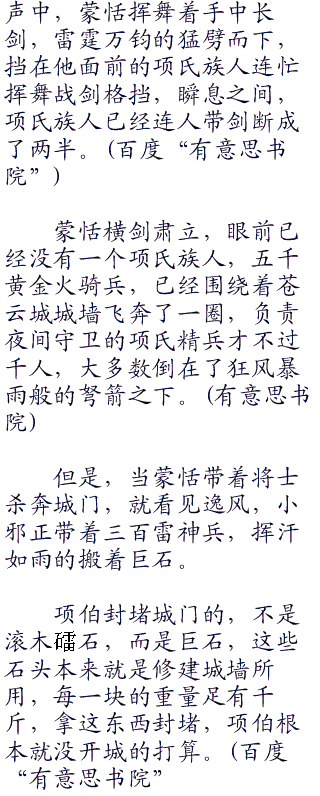 声中，蒙恬挥舞着手中长
剑，雷霆万钧的猛劈而下，
挡在他面前的项氏族人连忙
挥舞战剑格挡，瞬息之间，
项氏族人已经连人带剑断成
了两半。(百度“有意思书
院”)
蒙恬横剑肃立，眼前已
经没有一个项氏族人，五千
黄金火骑兵，已经围绕着苍
云城城墙飞奔了一圈，负责
夜间守卫的项氏精兵才不过
千人，大多数倒在了狂风暴
雨般的弩箭之下。(有意思书
院)
但是，当蒙恬带着将士
杀奔城门，就看见逸风，小
邪正带着三百雷神兵，挥汗
如雨的搬着巨石。
项伯封堵城门的，不是
滚木礌石，而是巨石，这些
石头本来就是修建城墙所
用，每一块的重量足有千
斤，拿这东西封堵，项伯根
本就没开城的打算。(百度
“有意思书院”